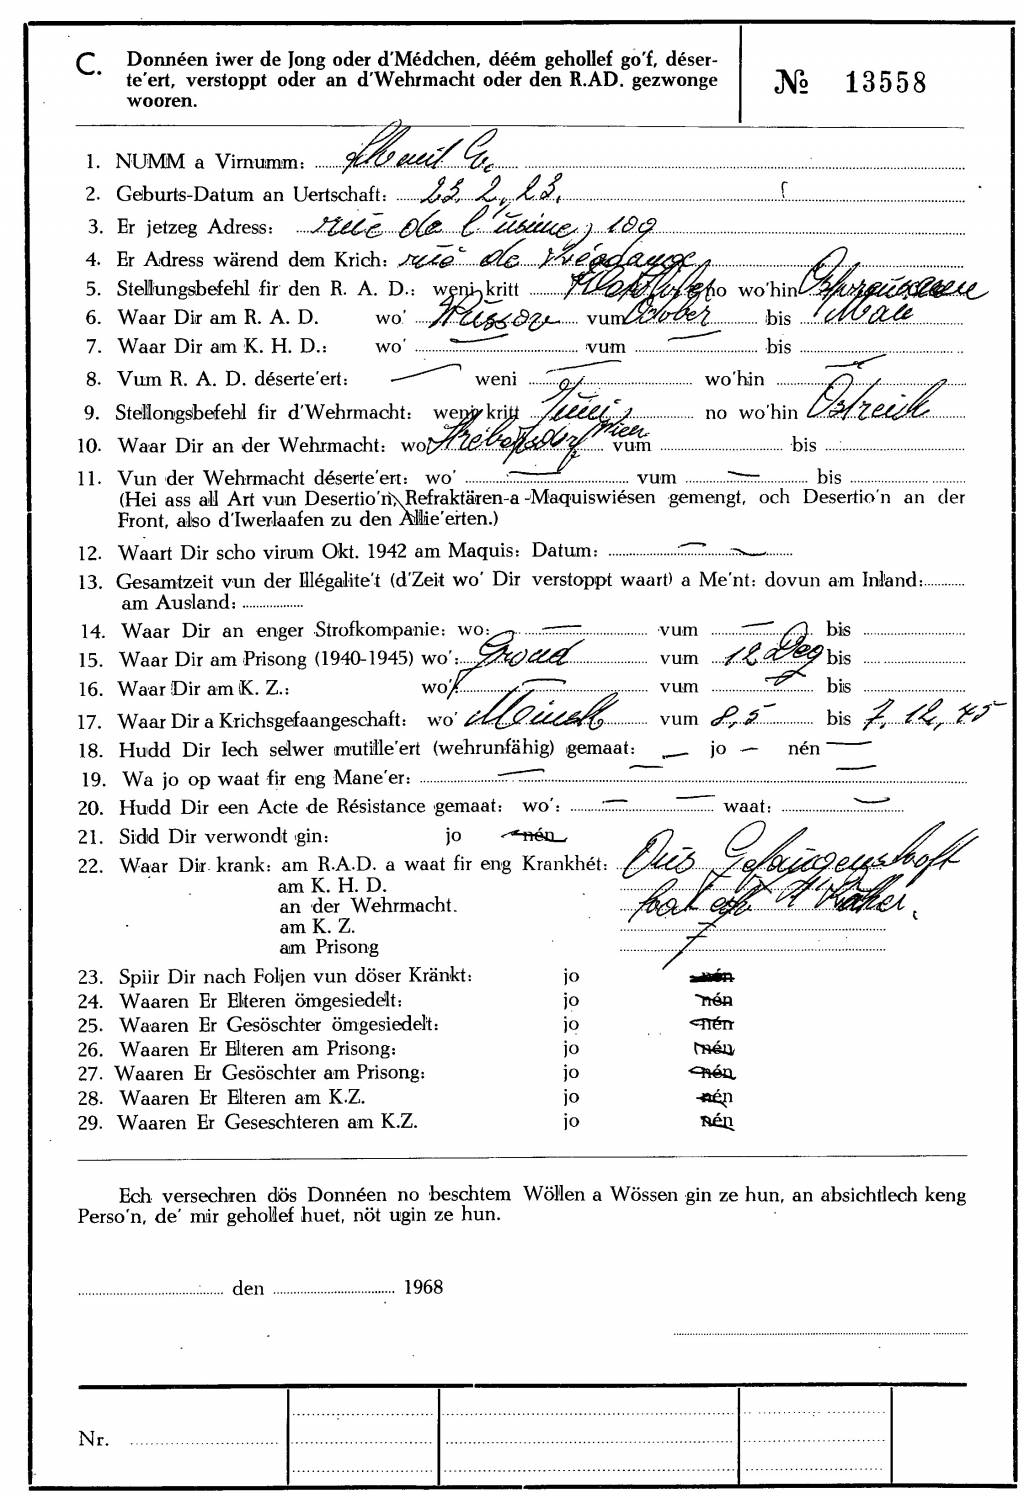 C. Donnéen iwer de Jong oder d'Médchen, déém gehollef go'f, déser-
te'ert, verstoppt oder an d'Wehrmacht oder den R.AD. gezwonge
wooren.
№ 13558
1. NUMM a Virnumm:
2. Geburts-Datum an Uertschaft: 23. 2. 23.
3. Er jetzeg Adress: rue de l'usine, 109
4. Er Adress wärend dem Krich: rue de
5. Stellungsbefehl fir den R. A. D.: weni kritt no wo'hin
6. Waar Dir am R. A. D. wo' vum October bis
7. Waar Dir am K. H. D.: wo' vum bis
8. Vum R. A. D. déserte'ert: — weni — wo'hin —
9. Stellongsbefehl fir d'Wehrmacht: weni kritt Juni no wo'hin Östreich
10. Waar Dir an der Wehrmacht: wo' Wien vum bis
11. Vun der Wehrmacht déserte'ert: wo' — vum — bis
(Hei ass all Art vun Desertio'n, Refraktären-a-Maquiswiésen gemengt, och Desertio'n an der
Front, also d'Iwerlaafen zu den Allie'erten.)
12. Waart Dir scho virum Okt. 1942 am Maquis: Datum: —
13. Gesamtzeit vun der Illégalite't (d'Zeit wo' Dir verstoppt waart) a Me'nt: dovun am Inland:
am Ausland:
14. Waar Dir an enger Strofkompanie: wo: — vum — bis
15. Waar Dir am Prisong (1940-1945) wo': Grond vum 12 bis
16. Waar Dir am K. Z.: wo' — vum bis
17. Waar Dir a Krichsgefaangeschaft: wo' Minsk vum 8,5 bis 7, 12, 45
18. Hudd Dir Iech selwer mutille'ert (wehrunfähig) gemaat: — jo — nén —
19. Wa jo op waat fir eng Mane'er: —
20. Hudd Dir een Acte de Résistance gemaat: wo': — waat: —
21. Sidd Dir verwondt gin: jo nén
22. Waar Dir krank: am R.A.D. a waat fir eng Krankhét: Gefangenschaft
am K. H. D.
an der Wehrmacht.
am K. Z.
am Prisong
23. Spiir Dir nach Foljen vun döser Kränkt: jo nén
24. Waaren Er Elteren ömgesiedelt: jo nén
25. Waaren Er Gesöschter ömgesiedelt: jo nén
26. Waaren Er Elteren am Prisong: jo nén
27. Waaren Er Gesöschter am Prisong: jo nén
28. Waaren Er Elteren am K.Z. jo nén
29. Waaren Er Geseschteren am K.Z. jo nén
Ech versechren dös Donnéen no beschtem Wöllen a Wössen gin ze hun, an absichtlech keng
Perso'n, de' mir gehollef huet, nöt ugin ze hun.
den 1968
Nr.